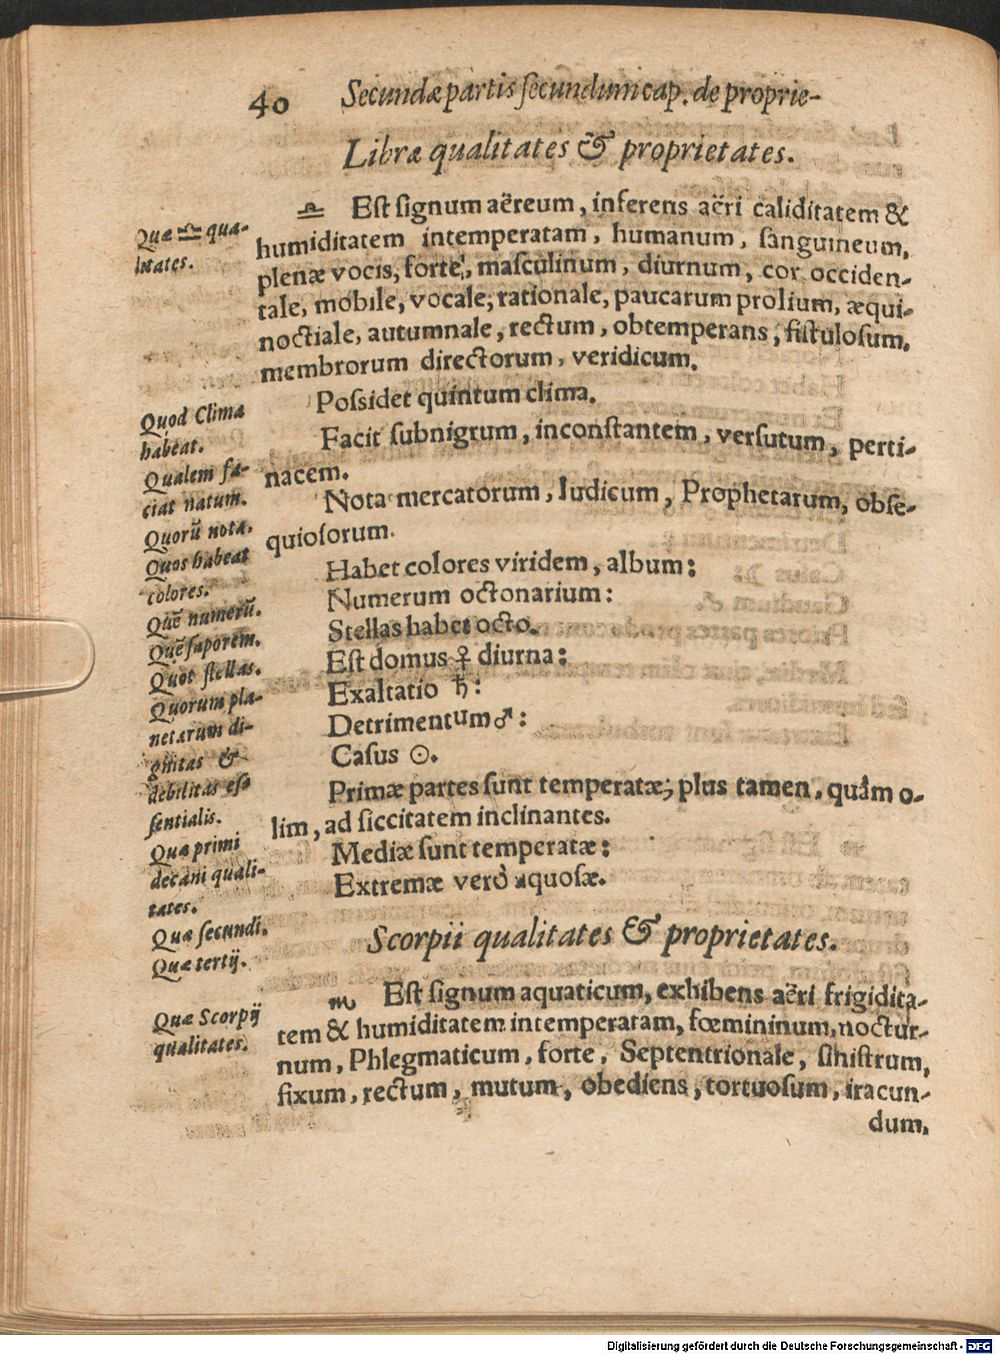 40 Secundæ partis ſecundum cap. de proprie-
Libræ qualitates & proprietates.
♎ Eſt ſignum aëreum, inferens aëri caliditatem &
humiditatem intemperatam, humanum, ſanguineum,
plenæ vocis, forte, maſculinum, diurnum, cor occiden-
tale, mobile, vocale, rationale, paucarum prolium, æqui-
noctiale, autumnale, rectum, obtemperans, fiſtuloſum,
membrorum directorum, veridicum.
Poſsidet quintum clima.
Facit ſubnigrum, inconſtantem, verſutum, perti-
nacem.
Nota mercatorum, Iudicum, Prophetarum, obſe-
quioſorum.
Habet colores viridem, album:
Numerum octonarium:
Stellas habet octo.
Eſt domus ♀ diurna:
Exaltatio ♄:
Detrimentum ♂:
Caſus ☉.
Primæ partes ſunt temperatæ; plus tamen, quàm o-
lim, ad ſiccitatem inclinantes.
Mediæ ſunt temperatæ:
Extremæ verò aquoſæ.
Scorpii qualitates & proprietates.
♏ Eſt ſignum aquaticum, exhibens aëri frigidita-
tem & humiditatem intemperatam, fœmininum, noctur-
num, Phlegmaticum, forte, Septentrionale, ſiniſtrum,
fixum, rectum, mutum, obediens, tortuoſum, iracun-
dum,
Quæ ♎ qua-
litates.
Quod Clima
habeat.
Qualem fa-
ciat natum.
Quorũ nota.
Quos habeat
colores.
Quẽ numerũ.
Quẽ ſaporem.
Quot ſtellas.
Quorum pla-
netarum di-
gnitas &
debilitas eſ-
ſentialis.
Quæ primi
decani quali-
tates.
Quæ ſecundi.
Quæ tertij.
Quæ Scorpij
qualitates.
Digitalisierung gefördert durch die Deutsche Forschungsgemeinschaft - DFG